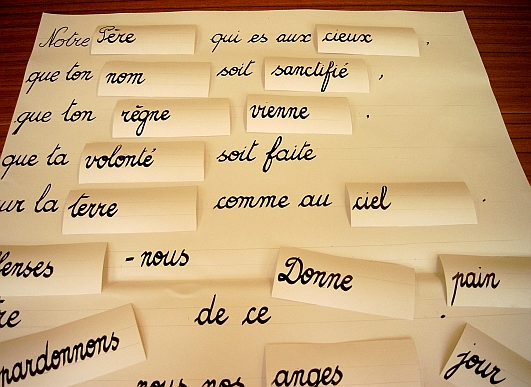 Notre Père qui es aux cieux .
que ton nom soit sanctifié ,
que ton règne vienne .
que ta volonté soit faite
ur la terre comme au ciel .
fenses - nous Donne pain
re de ce .
pardonnons nous nos anges jour